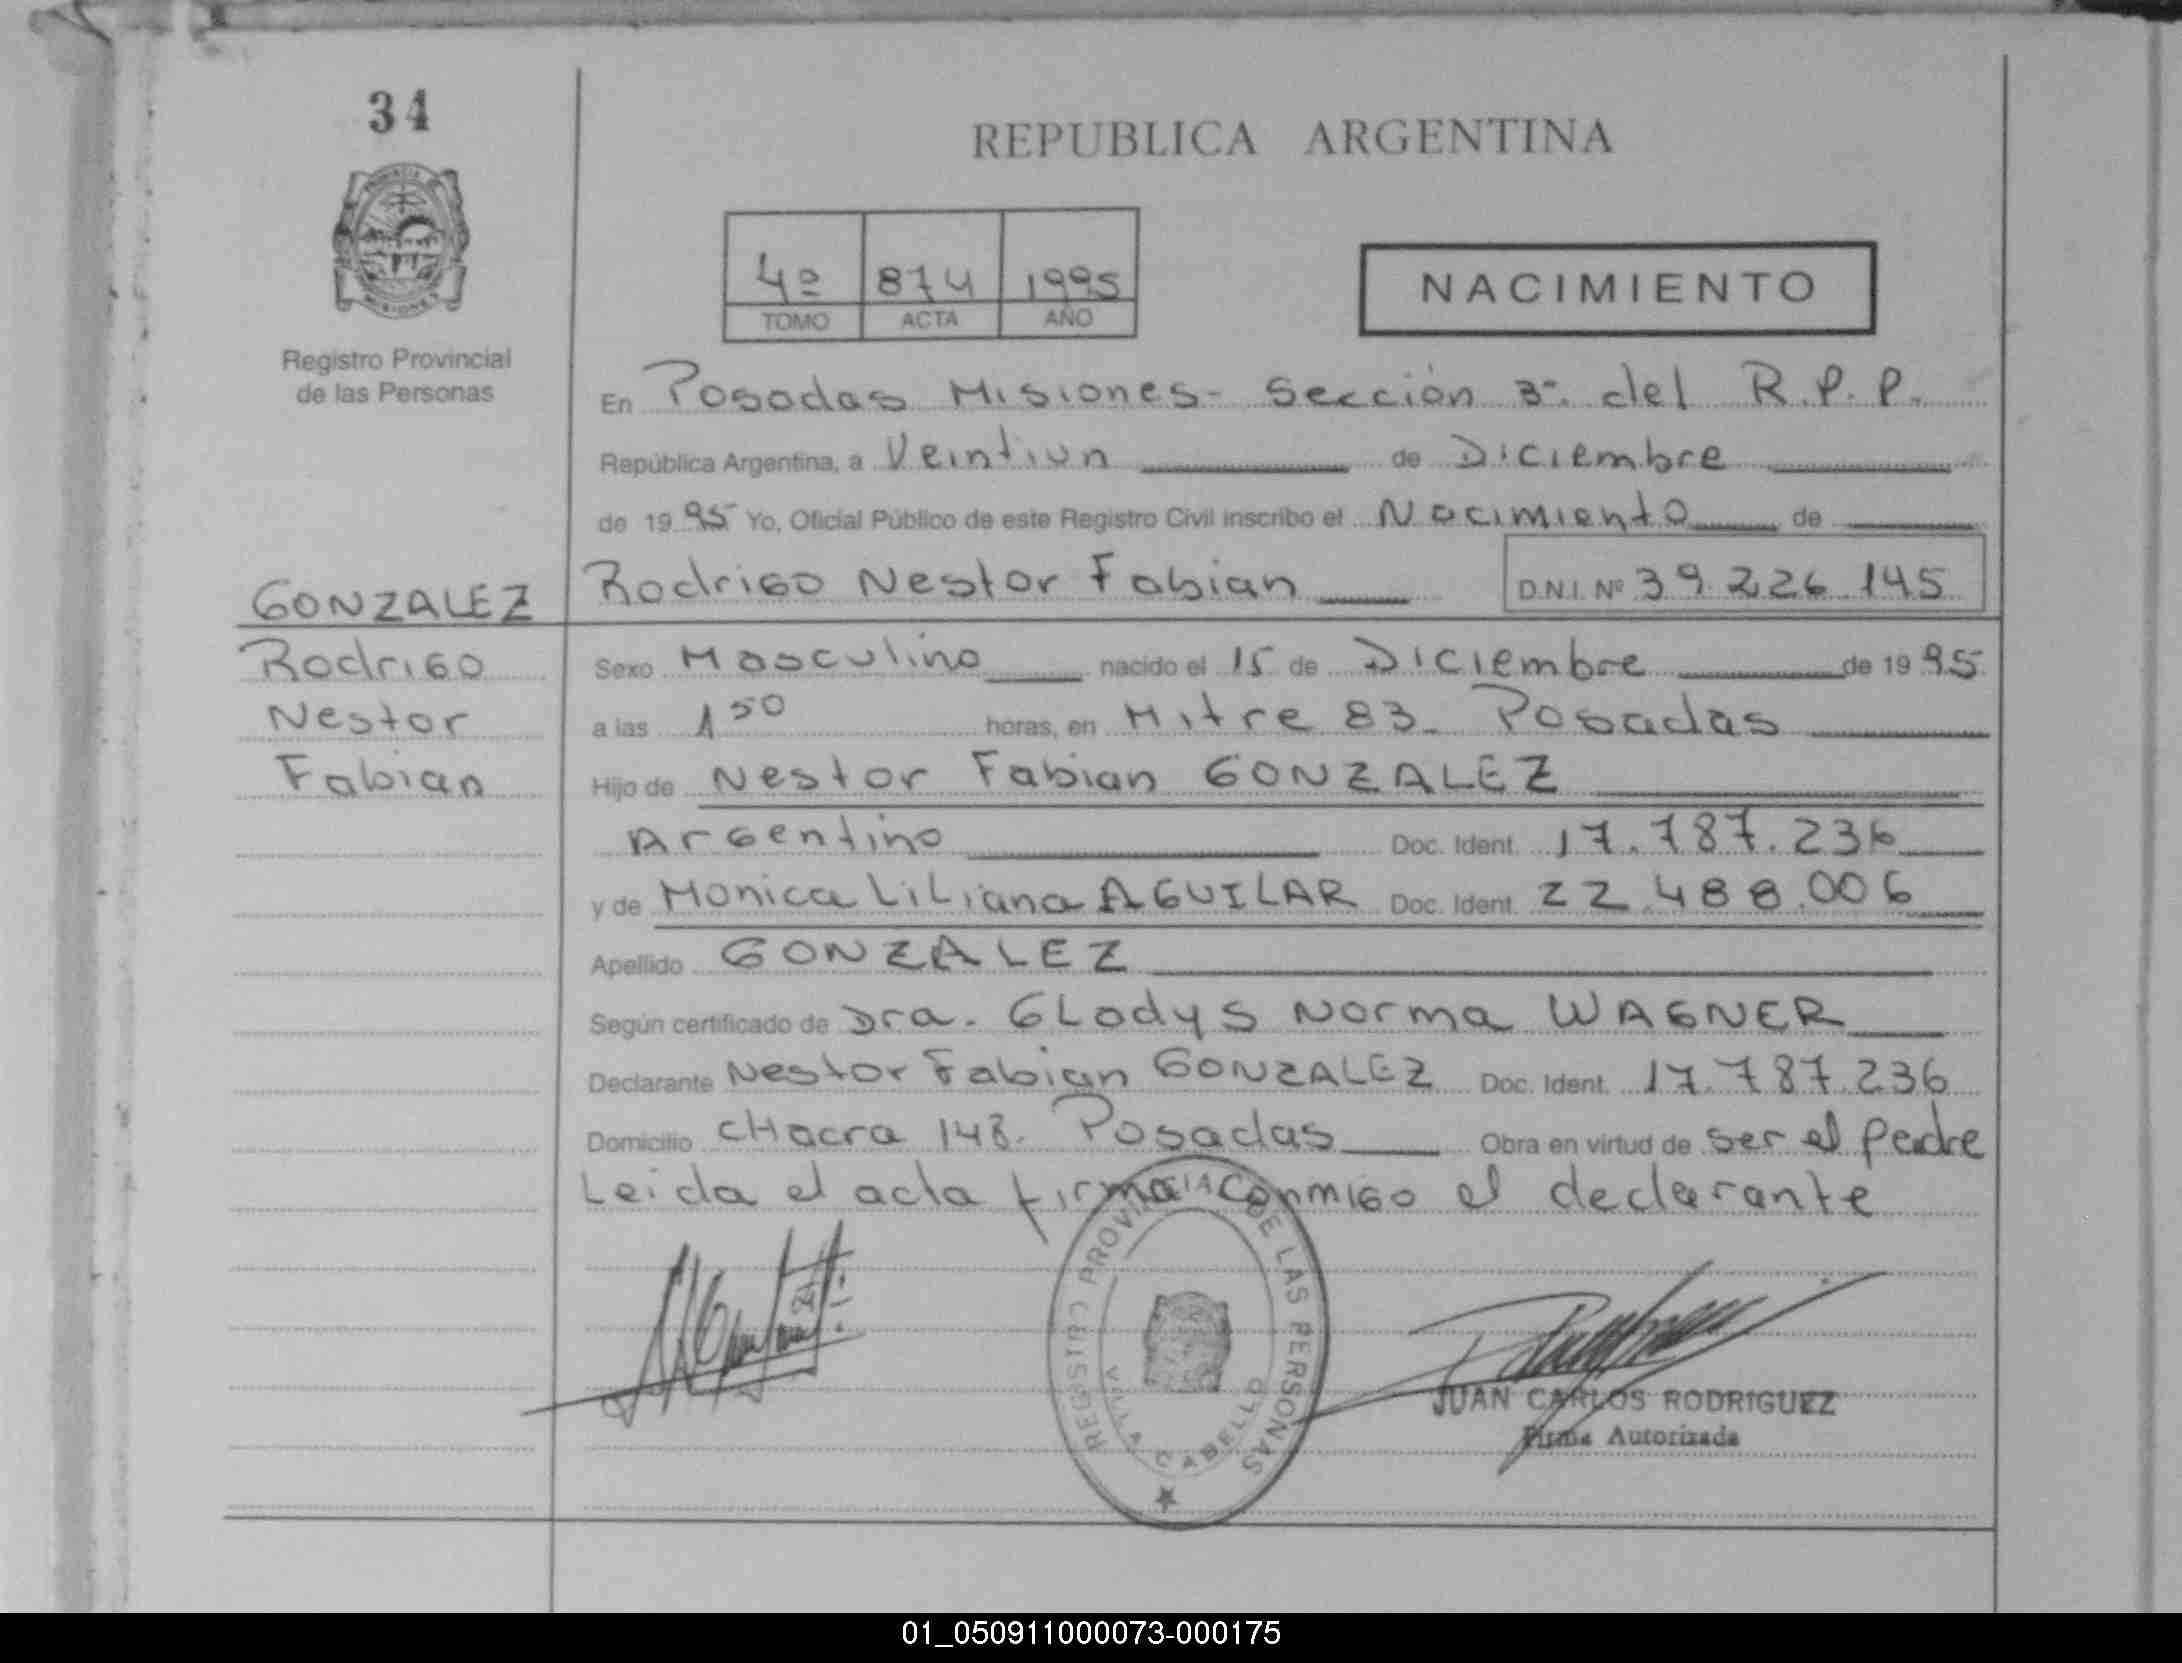 34
REPUBLICA ARGENTINA
4º 874 1995
TOMO ACTA AÑO
NACIMIENTO
Registro Provincial
de las Personas
En Posadas Misiones - Sección 3ª. del R.P.P.
República Argentina, a Veintiun de Diciembre
de 1995 Yo, Oficial Público de este Registro Civil inscribo el Nacimiento de
GONZALEZ
Rodrigo
Nestor
Fabian
Rodrigo Nestor Fabian D.N.I. Nº 39.226.145
Sexo Masculino nacido el 15 de Diciembre de 1995
a las 1 50 horas, en Mitre 83 - Posadas
Hijo de Nestor Fabian GONZALEZ
Argentino Doc. Ident. 17.787.236
y de Monica Liliana AGUILAR Doc. Ident. 22.488.006
Apellido GONZALEZ
Según certificado de Dra. Gladys Norma WAGNER
Declarante Nestor Fabian GONZALEZ Doc. Ident. 17.787.236
Domicilio CHacra 148. Posadas Obra en virtud de ser el padre
Leida el acta firma conmigo el declarante
REGISTRO PROVINCIAL DE LAS PERSONAS
VILLA CABELLO
JUAN CARLOS RODRIGUEZ
Firma Autorizada
01_050911000073-000175